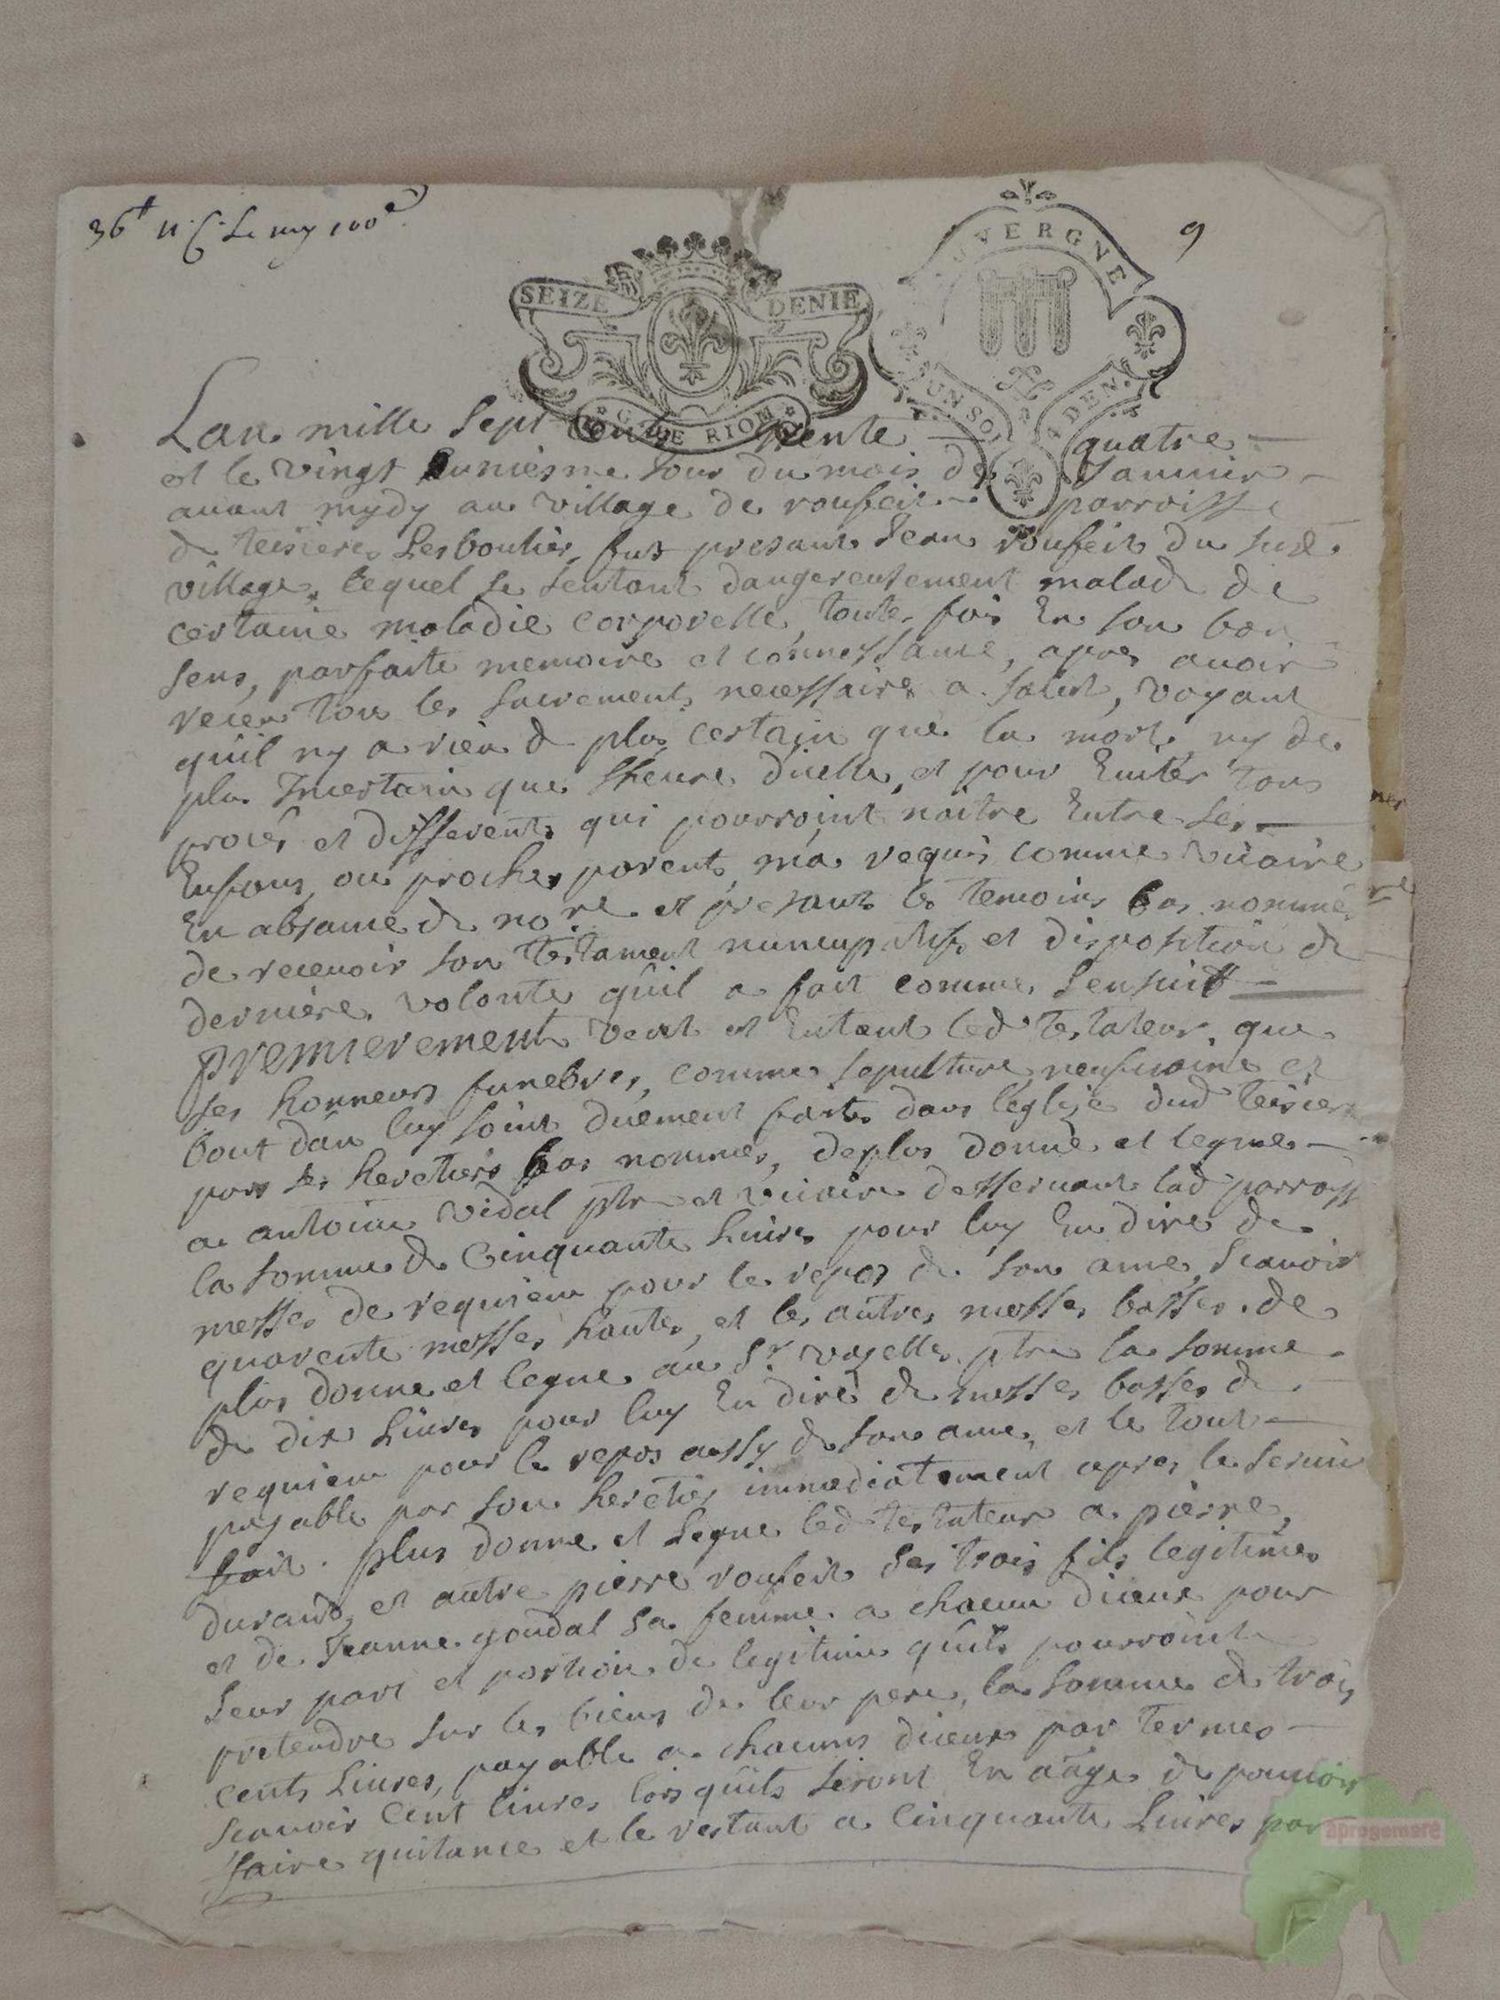 9
AUVERGNE
SEIZE DENIE
UN SOL DEN.
G. DE RIOM
Lan mille Sept cent trente quatre
et le vingt uniesme Jour du mois de Janvier
avant mydy au village de roufeit parroisse
de teisieres Lesbouliés, fut presant Jean roufeit du susd
village, lequel se sentant dangereusement malade de
certaine maladie corporelle, toutes fois En son bon
sens, parfaite memoire et connessance, apres avoir
receu tous les sacrements necessaires a salut, voyant
quil ny a rien de plus certain que la mort, ny de
plus Incertain que lheure dicelle, et pour Eviter tous
procés et differents qui pourroint naitre Entre ses
Enfans, ou proches parents, ma requis comme vicaire
En absance de nore et presants les temoins bas nommés
de recevoir son testament nuncupatif, et disposition de
derniere volonté quil a fait comme sensuit
Premierement veut et Entent led testateur que
ses honneurs funebres, comme sepulture neufvaine et
bout dan luy soint duement faites dans leglise dud teisieres
par ses heretiers bas nommés, deplus donne et legue
a antoine vidal ptre et vicaire desservant lad parroisse
la somme de Cinquante Livres pour luy En dire de
messes de requiem pour le repos de son ame, Scavoir
quarente messes hautes, et les autres messes basses. de
plus donne et legue au Sr. vaselles ptre la somme
de dix Livres pour luy En dire de messes basses de
requiem pour le repos aussy de son ame, et le tout
payable par son heretier immediatement apres le servis
fait. Plus donne et Legue led testateur a pierre,
durand, et autre pierre roufeit ses trois fils legitimes
et de Jeanne goudal sa femme a chacun diceux pour
leur part et portion de legitime quils pourroint
pretendre sur les biens de leur pere, la somme de trois
cents Livres, payable a chacuns diceux par termes
scavoir Cent livres lors quils seront En aage de pouvoir
faire quitance et le restant a Cinquante Livres par
aprogemere